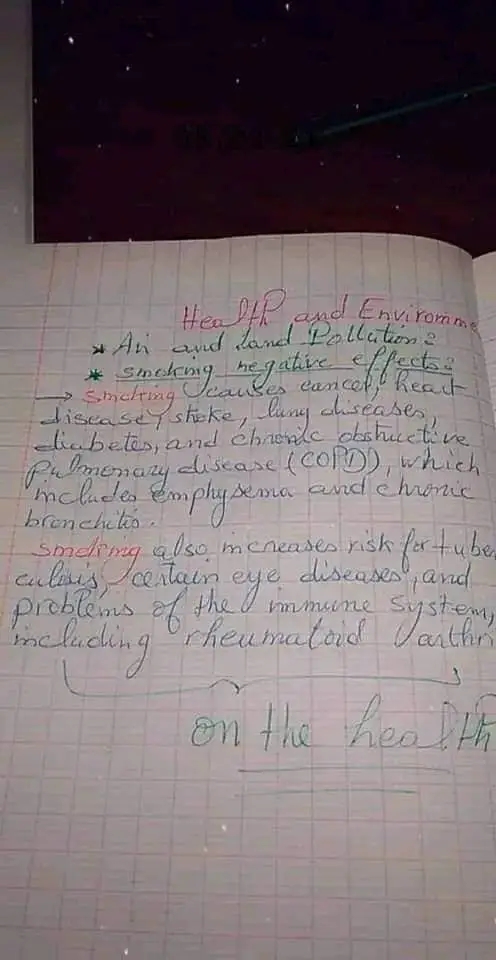 Health and Environme
* Air and Land Pollution:
* smoking negative effects:
→ Smoking causes cancer, heart
disease, stroke, lung diseases,
diabetes, and chronic obstructive
pulmonary disease (COPD), which
includes emphysema and chronic
bronchitis.
Smoking also increases risk for tuber
culosis, certain eye diseases, and
problems of the immune system,
including rheumatoid arthri
on the health